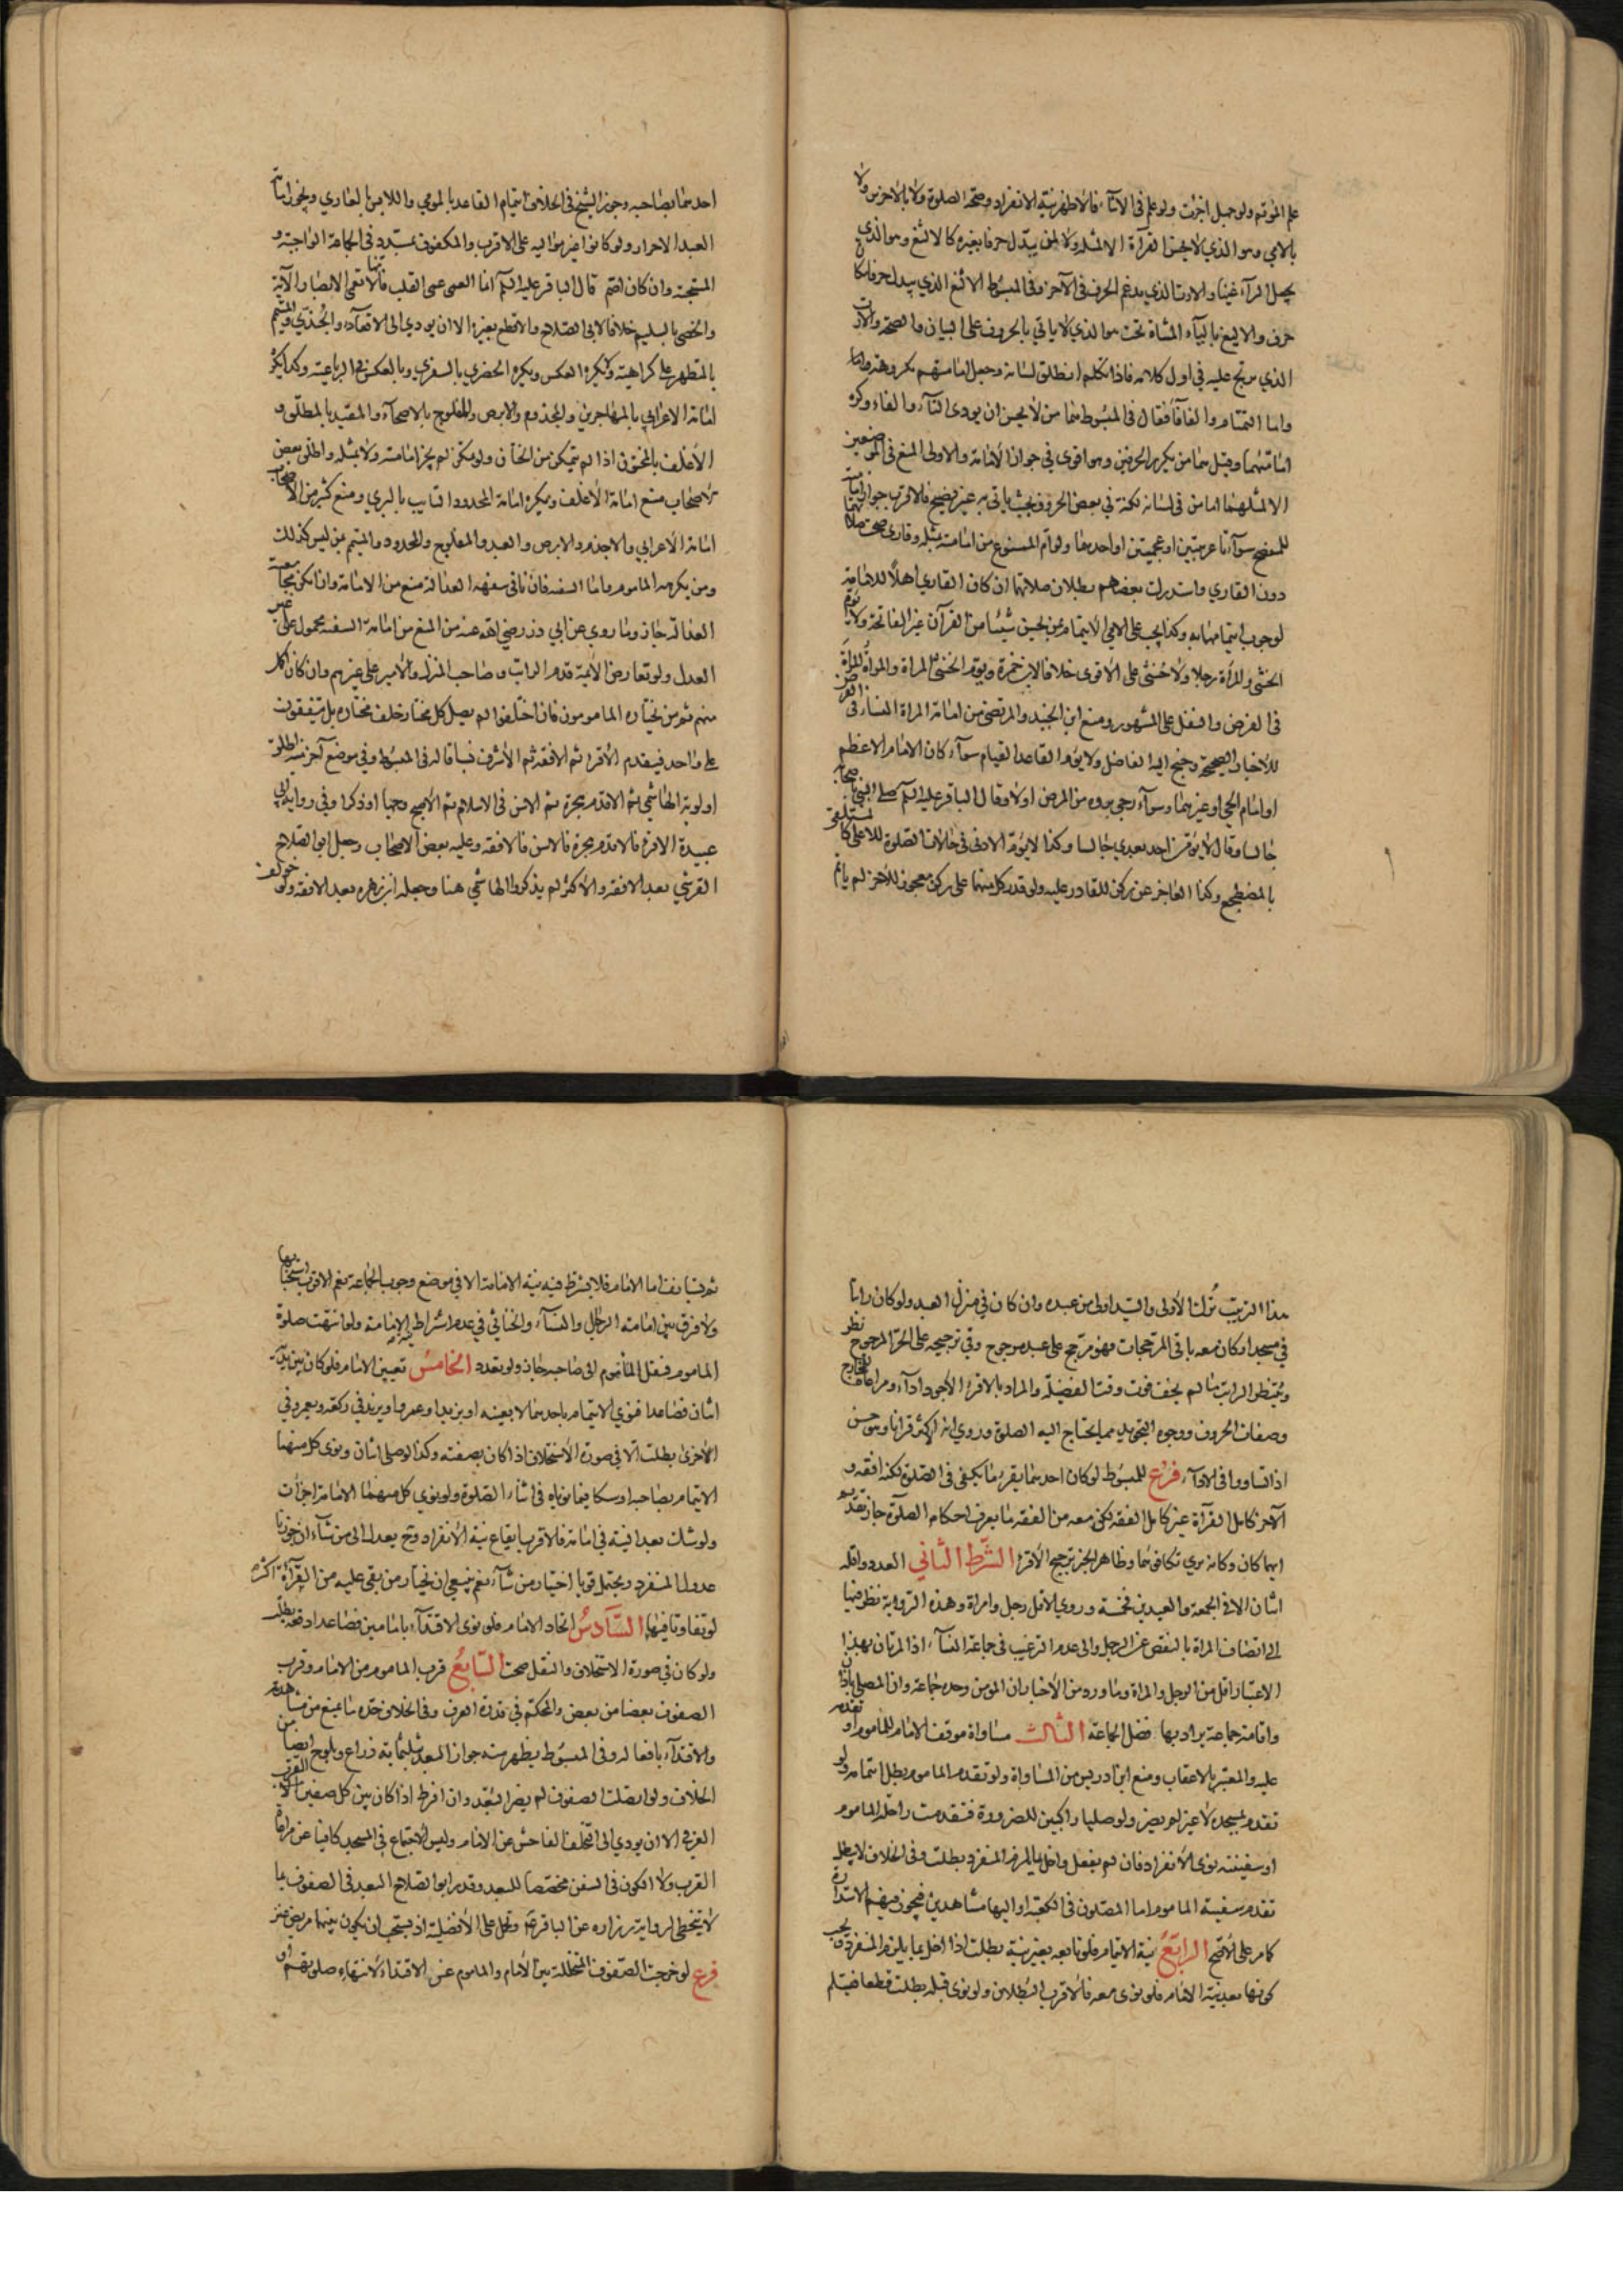 علم المؤتم ولو جهل اجزأت ولو علم فى الاثناء فالاظهر نية الانفراد وصحة الصلوة ولا بالاخرس ولا
بالامي وهو الذي لا يحسن القرآءة الا لمثله ولا لمن يبدل حرفا بغيره كالالثغ وهو الذي
يجعل الرآء غينا والارت الذي يدغم الحرف فى الآخر وفى المبسوط الالثغ الذي يبدل حرفا مكان
حرف والاليغ باليآء المثناة تحت هو الذي لا ياتي بالحروف على البيان والصحة والارت
الذي يرتج عليه في اول كلامه فاذا تكلم انطلق لسانه وجعل امامتهم مكروهة
واما التمتام والفافآ فقال فى المبسوط هما من لا يحسن ان يودى التآء والفاء وكره
امامتهما وقيل هما من يكرر الحرفين وهو اقوى في جواز الامامة والاولى المنع فى الموضعين
الا لمثلهما اما من فى لسانه لكنة في بعض الحروف بحيث ياتى به غير فصيح فالاقرب جواز امامته
للمفصح سوآء كانا عربيين او عجميين او احدهما ولو ام الممنوع من امامته مثله وقارى صحت صلاتهما
دون القاري واستدرك بعضهم بطلان صلاتهما ان كان القاري اهلا للامامة
لوجوب ايتمامهما به وكذا يجب على الامي الايتمام بمن يحسن شيئا من القرآن غير الفاتحة ولا يؤم
الخنثى والمرأة رجلا ولا خنثى على الاقوى خلافا لابن حمزة ويؤم الخنثى المراة والمرأة المرأة
فى الفرض والنفل على المشهور ومنع ابن الجنيد والمرتضى من امامة المراة النساء فى الفرض
للاخبار الصحيحة وجنح اليه الفاضل ولا يؤم القاعد القيام سوآء كان الامام الاعظم
او امام الحي او غيرهما وسوآء رجي بروه من المرض اولا وقال الباقر عليه السلم صلى النبي باصحابه
جالسا وقال لا يؤمن احد بعدي جالسا وكذا لا يؤم الادنى فى حالات الصلوة للاعلى كالمستلقى
بالمضطجع وكذا العاجز عن ركن للقادر عليه ولو قدر كل منهما على ركن معجوز للاخر لم ياتم
احدهما بصاحبه وجوز الشيخ فى الخلاف ايتمام القاعد بالمومي واللابس بالعاري ويجوز امامة
العبد الاحرار ولو كانوا غير مواليه على الاقرب والمكفوف بمسدد فى الجماعة الواجبة و
المستحبة وان كان اصم قال الباقر عليه السلم انما العمى عمى القلب فانها لا تعمى الابصار الآية
والخصي بالسليم خلافا لابي الصلاح والاقطع بغيره الا ان يودي الى الاقعاد والجندي والمتيمم
بالمتطهر على كراهية ولا يكره العكس ويكره الحضري بالسفري وبالعكس في الرباعية وكذا يكره
امامة الاعرابي بالمهاجرين والمجذوم والابرص والمفلوج بالاصحآء والمقيد بالمطلق و
الاغلف بالمختون اذا لم يتمكن من الختان ولو تمكن لم يجز امامته ولا بمثله واطلق بعض
الاصحاب منع امامة الاغلف ويكره امامة المحدود التايب بالبري ومنع كثير من الاصحاب
امامة الاعرابي والاجذم والابرص والعبد والمفلوج والمحدود والمتيمم بمن ليس كذلك
ومن يكرهه الماموم واما السفه فان نافى سفهه العدالة منع من الامامة وان امكن مجامعته
العدالة جاز وما روي عن ابي ذر رضي الله عنه من المنع من امامة السفيه محمول على غير
العدل ولو تعارض الايمة قدم الراتب وصاحب المنزل والامير على غيرهم وان كان اكمل
منهم ثم من يختاره المامومون فان اختلفوا لم يصل كل مختار خلف مختاره بل يتفقون
على واحد فيقدم الاقرا ثم الافقه ثم الاشرف نسبا قاله فى المبسوط وفي موضع آخر منه اطلق
اولوية الهاشمي ثم الاقدم هجرة ثم الاسن فى الاسلام ثم الاصبح وجها او ذكرا وفي رواية ابي
عبيدة الاقرا فالاقدم هجرة فالاسن فالافقه وعليه بعض الاصحاب وجعل ابو الصلاح
القرشي بعد الافقه والاكثر لم يذكروا الهاشمي هنا وجعله ابن زهره بعد الافقه ولو خولف
هذا الترتيب ترك الاولى والسيد اولى من عبده وان كان في منزل العبد ولو كان راتبا
في مسجد او كان معه باقى المرجحات فهو مرجح على عبد مرجوح وفي ترجيحه على الحر المرجوح نظر
وينتظر الراتب ما لم يخف فوت وقت الفضيلة والمراد بالاقرا الاجود ادآء ومراعاة المخارج
وصفات الحروف ووجوه التجويد مما يحتاج اليه الصلوة وروي انه الاكثر قرانا وهو حسن
اذا تساووا فى الادآء فرع للمبسوط لو كان احدهما يقرء ما يكفى فى الصلوة لكنه افقه و
الآخر كامل القرآءة غير كامل الفقه لكن معه من الفقه ما يعرف احكام الصلوة جاز تقديم
ايهما كان وكانه يرى تكافؤهما وظاهر الخبر ترجيح الاقرا الشرط الثاني العدد واقله
اثنان الا في الجمعة والعيدين فخمسة وروي الاقل رجل وامراة وهذه الرواية نظر فيها
الى اتصاف المراة بالنقص عن الرجل والى عدم الترغيب في جماعة النسآء اذ المرتان بهذا
الاعتبار اقل من الرجل والمراة وما ورد من الاخبار ان المومن وحده جماعة وان المصلي باذان
واقامة جماعة يراد بها فضل الجماعة الثالث مساواة موقف الامام للماموم او تقدمه
عليه والمعتبر بالاعقاب ومنع ابن ادريس من المساواة ولو تقدم الماموم بطل ايتمامه ولو
تقدم بمسجده لا غير لم يضر ولو صليا راكبين للضرورة فتقدمت راحلة الماموم
او سفينته نوى الانفراد فان لم يفعل واخل بما يلزم المنفرد بطلت وفى الخلاف لا يبطل
تقدم سفينة الماموم اما المصلون فى الكعبة او اليها مشاهدين فيجوز فيهم الاستدارة
كما مر على الاصح الرابع نية الايتمام فلو تابعه بغير نية بطلت اذا اخل بما يلزم المنفرد ويجب
كونها بعد نية الامام فلو نوى معه فالاقرب البطلان ولو نوى قبله بطلت قطعا فيسلم
ثم يستانف اما الامام فلا يشترط فيه نية الامامة الا في موضع وجوب الجماعة نعم الاقرب استحبابها
ولا فرق بين امامته الرجال والنسآء والخناثي في عدم اشتراط نية الامامة ولو انتهت صلوة
الماموم فنقل الماموم الى صاحبه جاز ولو تعدد الخامس تعيين الامام فلو كان بين يديه
اثنان فصاعدا فنوي الايتمام باحدهما لا بعينه او بزيد او عمرو او بزيد في ركعة وبعمرو في
الاخرى بطلت الا في صورة الاستخلاف اذا كان بصفته وكذا لو صلى اثنان ونوى كل منهما
الايتمام بصاحبه او شكا فيما نوياه فى اثناء الصلوة ولو نوى كل منهما الامامة اجزأت
ولو شك بعد النية في امامه فالاقرب ايقاع نية الانفراد وح يعدل الى من شآء ان جوزنا
عدول المنفرد ويحتمل قويا اختيار من شآء نعم ينبغي ان يختار من بقى عليه من القرآءة اكثره
لو تفاوتا فيها السادس اتحاد الامام فلو نوى الاقتدآء بامامين فصاعدا دفعة بطلت
ولو كان في صورة الاستخلاف والنقل صحت السابع قرب الماموم من الامام وقرب
الصفوف بعضها من بعض والمحكم في قدره العرف وفى الخلاف حده ما يمنع من مشاهدته
والاقتدآء بافعاله وفى المبسوط يظهر منه جواز البعد بثلثماية ذراع ويلوح ايضا من
الخلاف ولو اتصلت الصفوف لم يضر البعد وان افرط اذا كان بين كل صفين القرب
العرفي الا ان يودي الى التخلف الفاحش عن الامام وليس الاجتماع في المسجد كافيا عن مراعاة
القرب ولا الكون فى السفن مخصصا للبعد وقدر ابو الصلاح البعد فى الصفوف بما
لا يتخطى لرواية زراره عن الباقر ع وتحمل على الافضلية اذ يستحب ان يكون بينهما مربض عنز
فرع لو خرجت الصفوف المتخللة بين الامام والماموم عن الاقتداء لانتهاء صلوتهم او